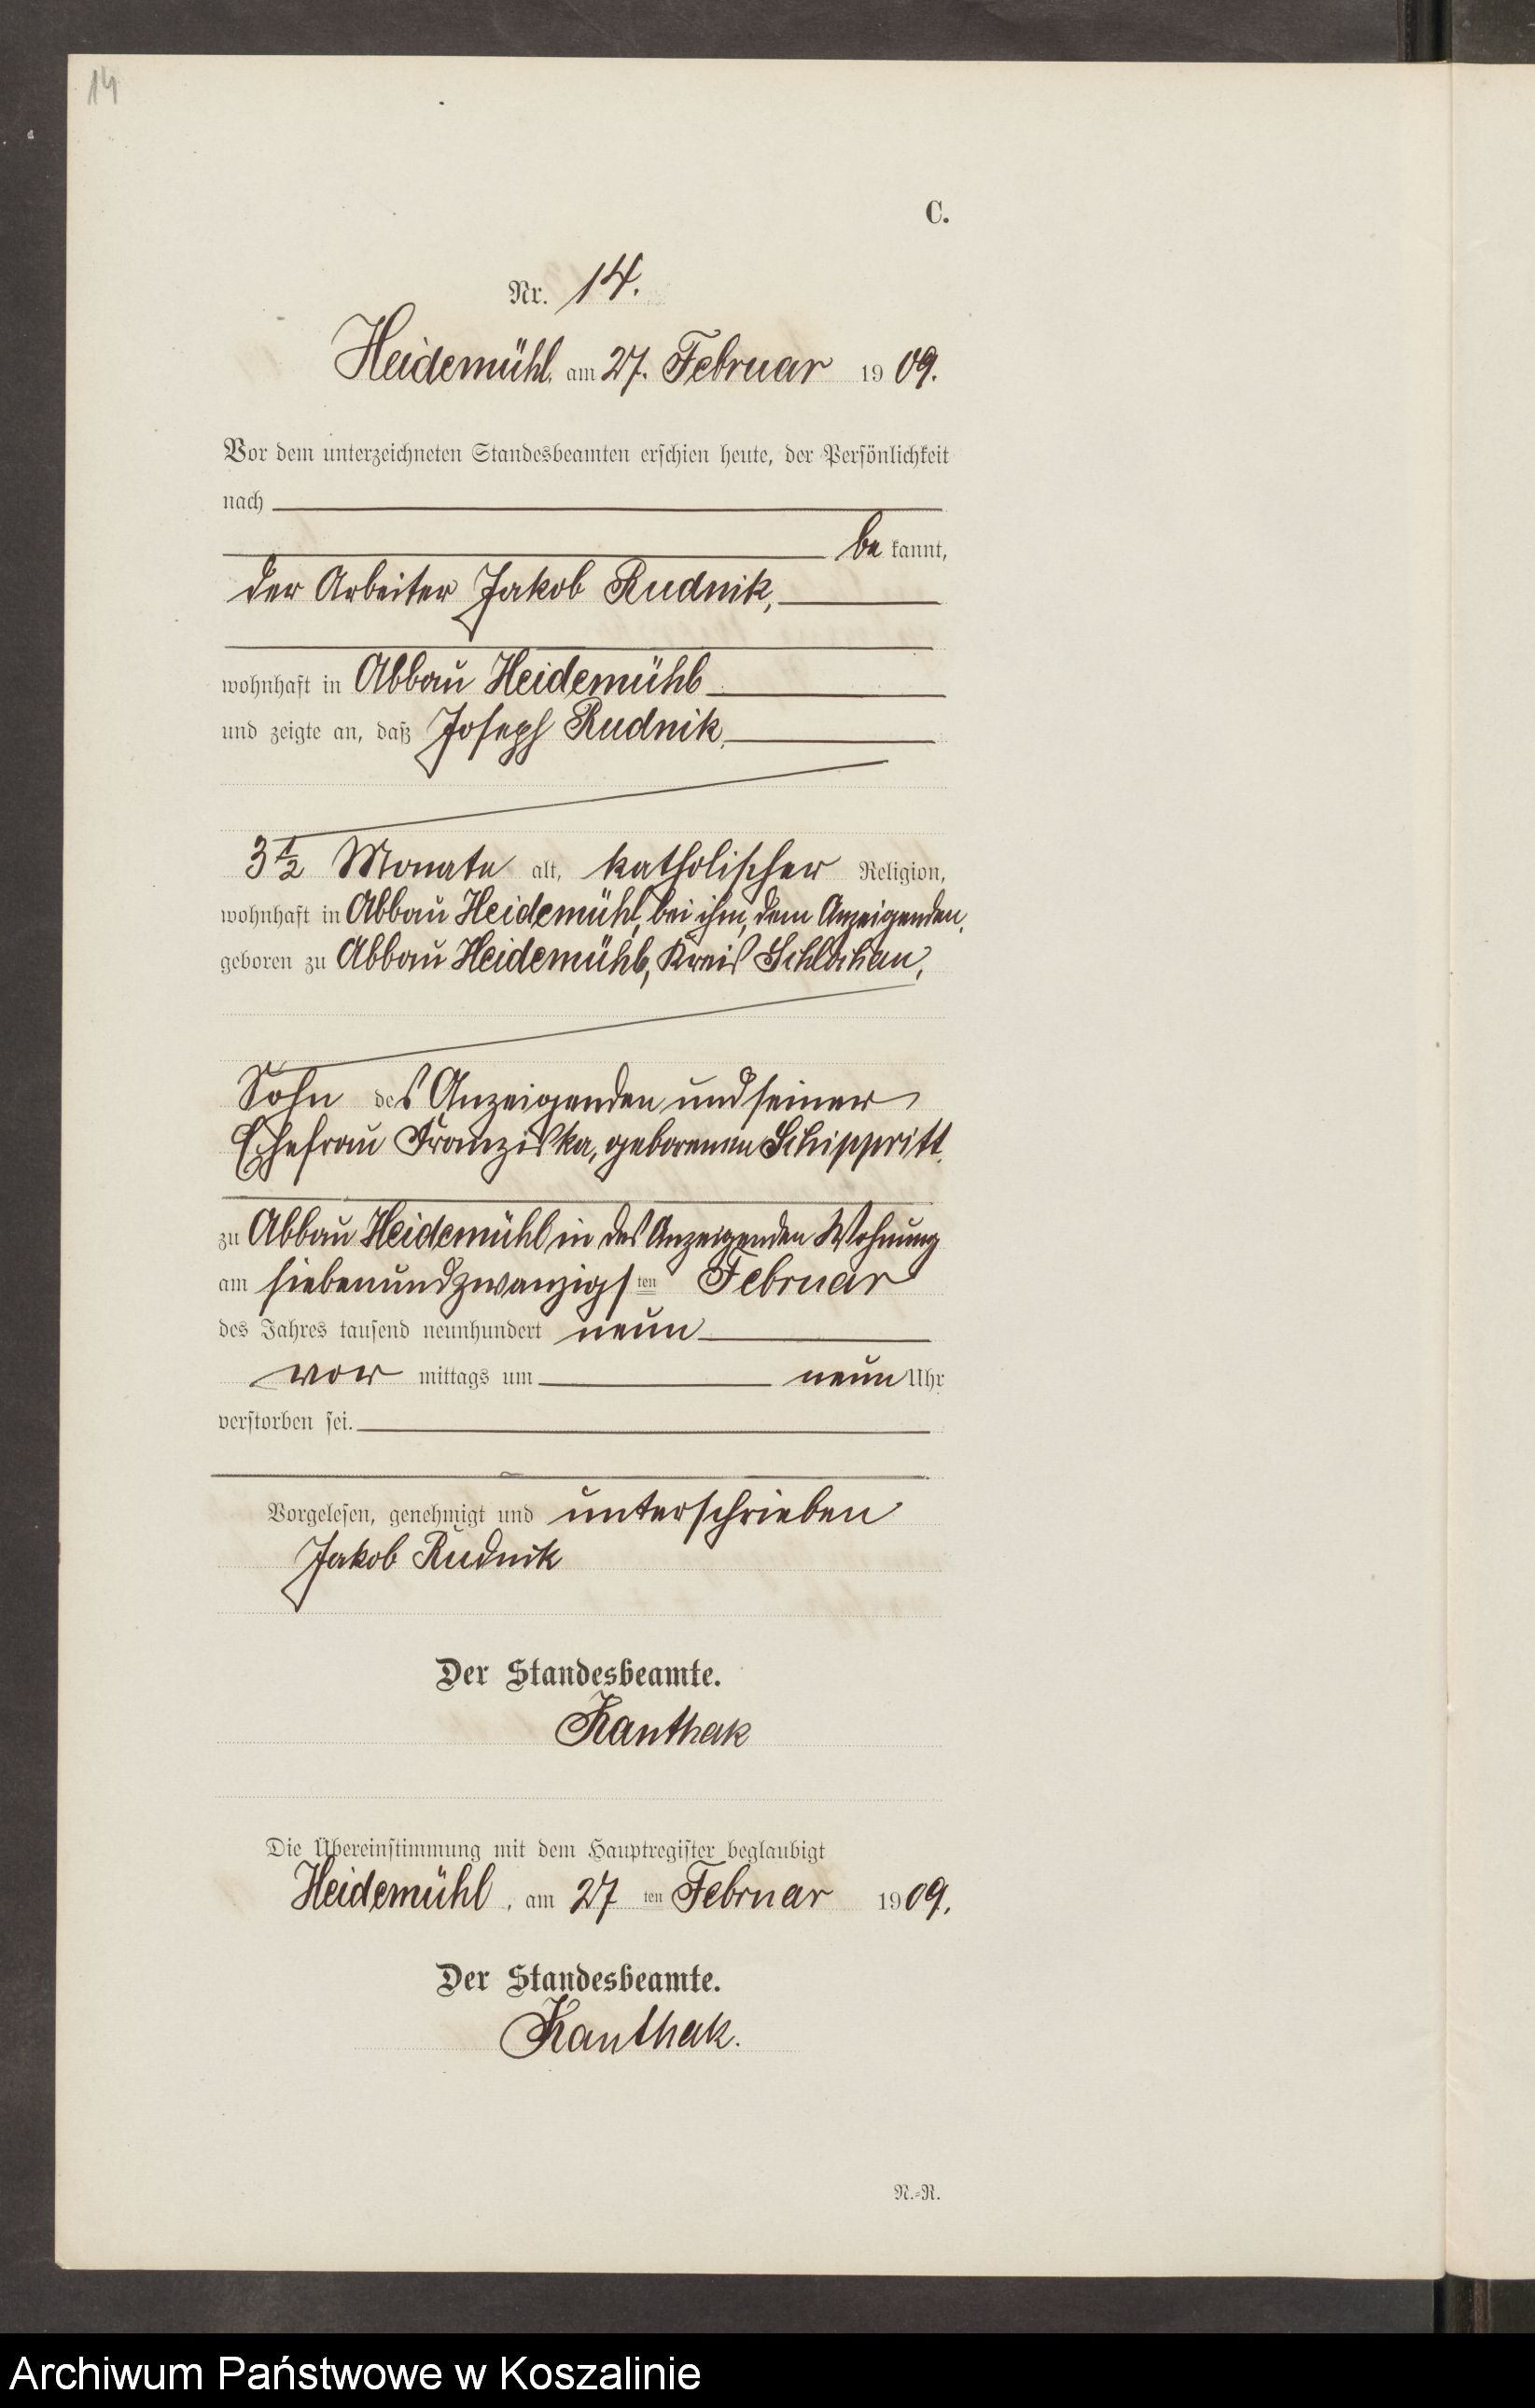 14
C.
Nr. 14.
Heidemühl, am 27. Februar 1909.
Vor dem unterzeichneten Standesbeamten erschien heute, der Persönlichkeit
nach
be kannt,
der Arbeiter Jakob Rudnik,
wohnhaft in Abbau Heidemühl
und zeigte an, daß Joseph Rudnik,
3 1/2 Monate alt, katholischer Religion,
wohnhaft in Abbau Heidemühl, bei ihm, dem Anzeigenden,
geboren zu Abbau Heidemühl, Kreis Schlochau,
Sohn des Anzeigenden und seiner
Ehefrau Franziska, geborenen Schippritt,
zu Abbau Heidemühl in des Anzeigenden Wohnung
am siebenundzwanzigsten Februar
des Jahres tausend neunhundert neun
vor mittags um neun Uhr
verstorben sei.
Vorgelesen, genehmigt und unterschrieben
Jakob Rudnik
Der Standesbeamte.
Kanthak
Die Übereinstimmung mit dem Hauptregister beglaubigt
Heidemühl, am 27 ten Februar 1909.
Der Standesbeamte.
Kanthak.
N.-R.
Archiwum Państwowe w Koszalinie